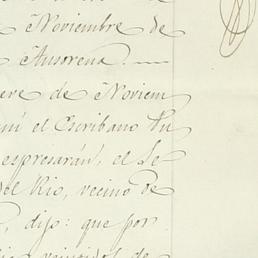 Noviembre de
Ansorena.—
ere de Noviem
el Escribano
espresarán, el Se
del Rio, vecino de
, dijo: que por
veintidos de